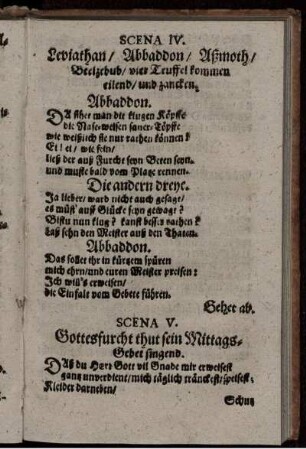 SCENA IV.
Leviathan/ Abbaddon/ Aßmoth/
Beelzebub/ vier Teuffel kommen
eilend/ und zancken.
Abbaddon.
DA sihet man die klugen Köpffe
die Nase-weisen saner-Töpffe
wie weißlich sie nur rathen können?
Ei! ei/ wie fein/
ließ der auß Furcht seyn Beten seyn.
und muste bald vom Platze rennen.
Die andern dreye.
Ja lieber/ ward nicht auch gesagt/
es müst' auff Glücke seyn gewagt?
Bistu nun klug? kanst besser rathen?
Laß sehn den Meister auß den Thaten.
Abbaddon.
Das sollet ihr in kürtzem spüren
mich ehrn/ und euren Meister preisen:
Ich wil's erweisen/
die Einfalt vom Gebete führen.
Gehet ab.
SCENA V.
Gottesfurcht thut sein Mittags-
Gebet singend.
DAß du Herr Gott vil Gnade mir erweisest
gantz unverdient/ mich täglich tränckest/ speisest/
Kleider darneben/
Schutz